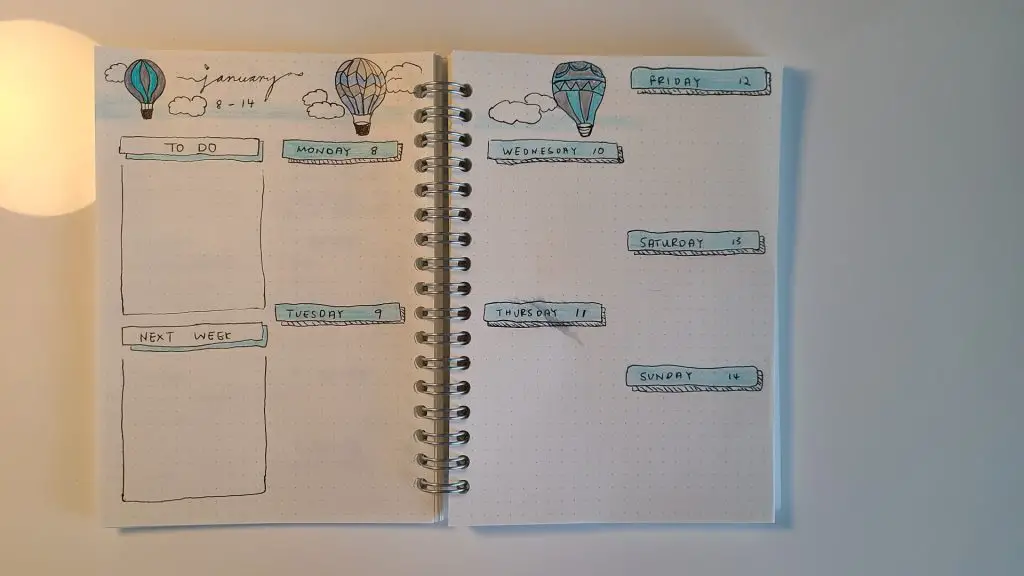 january
8 - 14
TO DO
MONDAY 8
TUESDAY 9
NEXT WEEK
WEDNESDAY 10
THURSDAY 11
FRIDAY 12
SATURDAY 13
SUNDAY 14